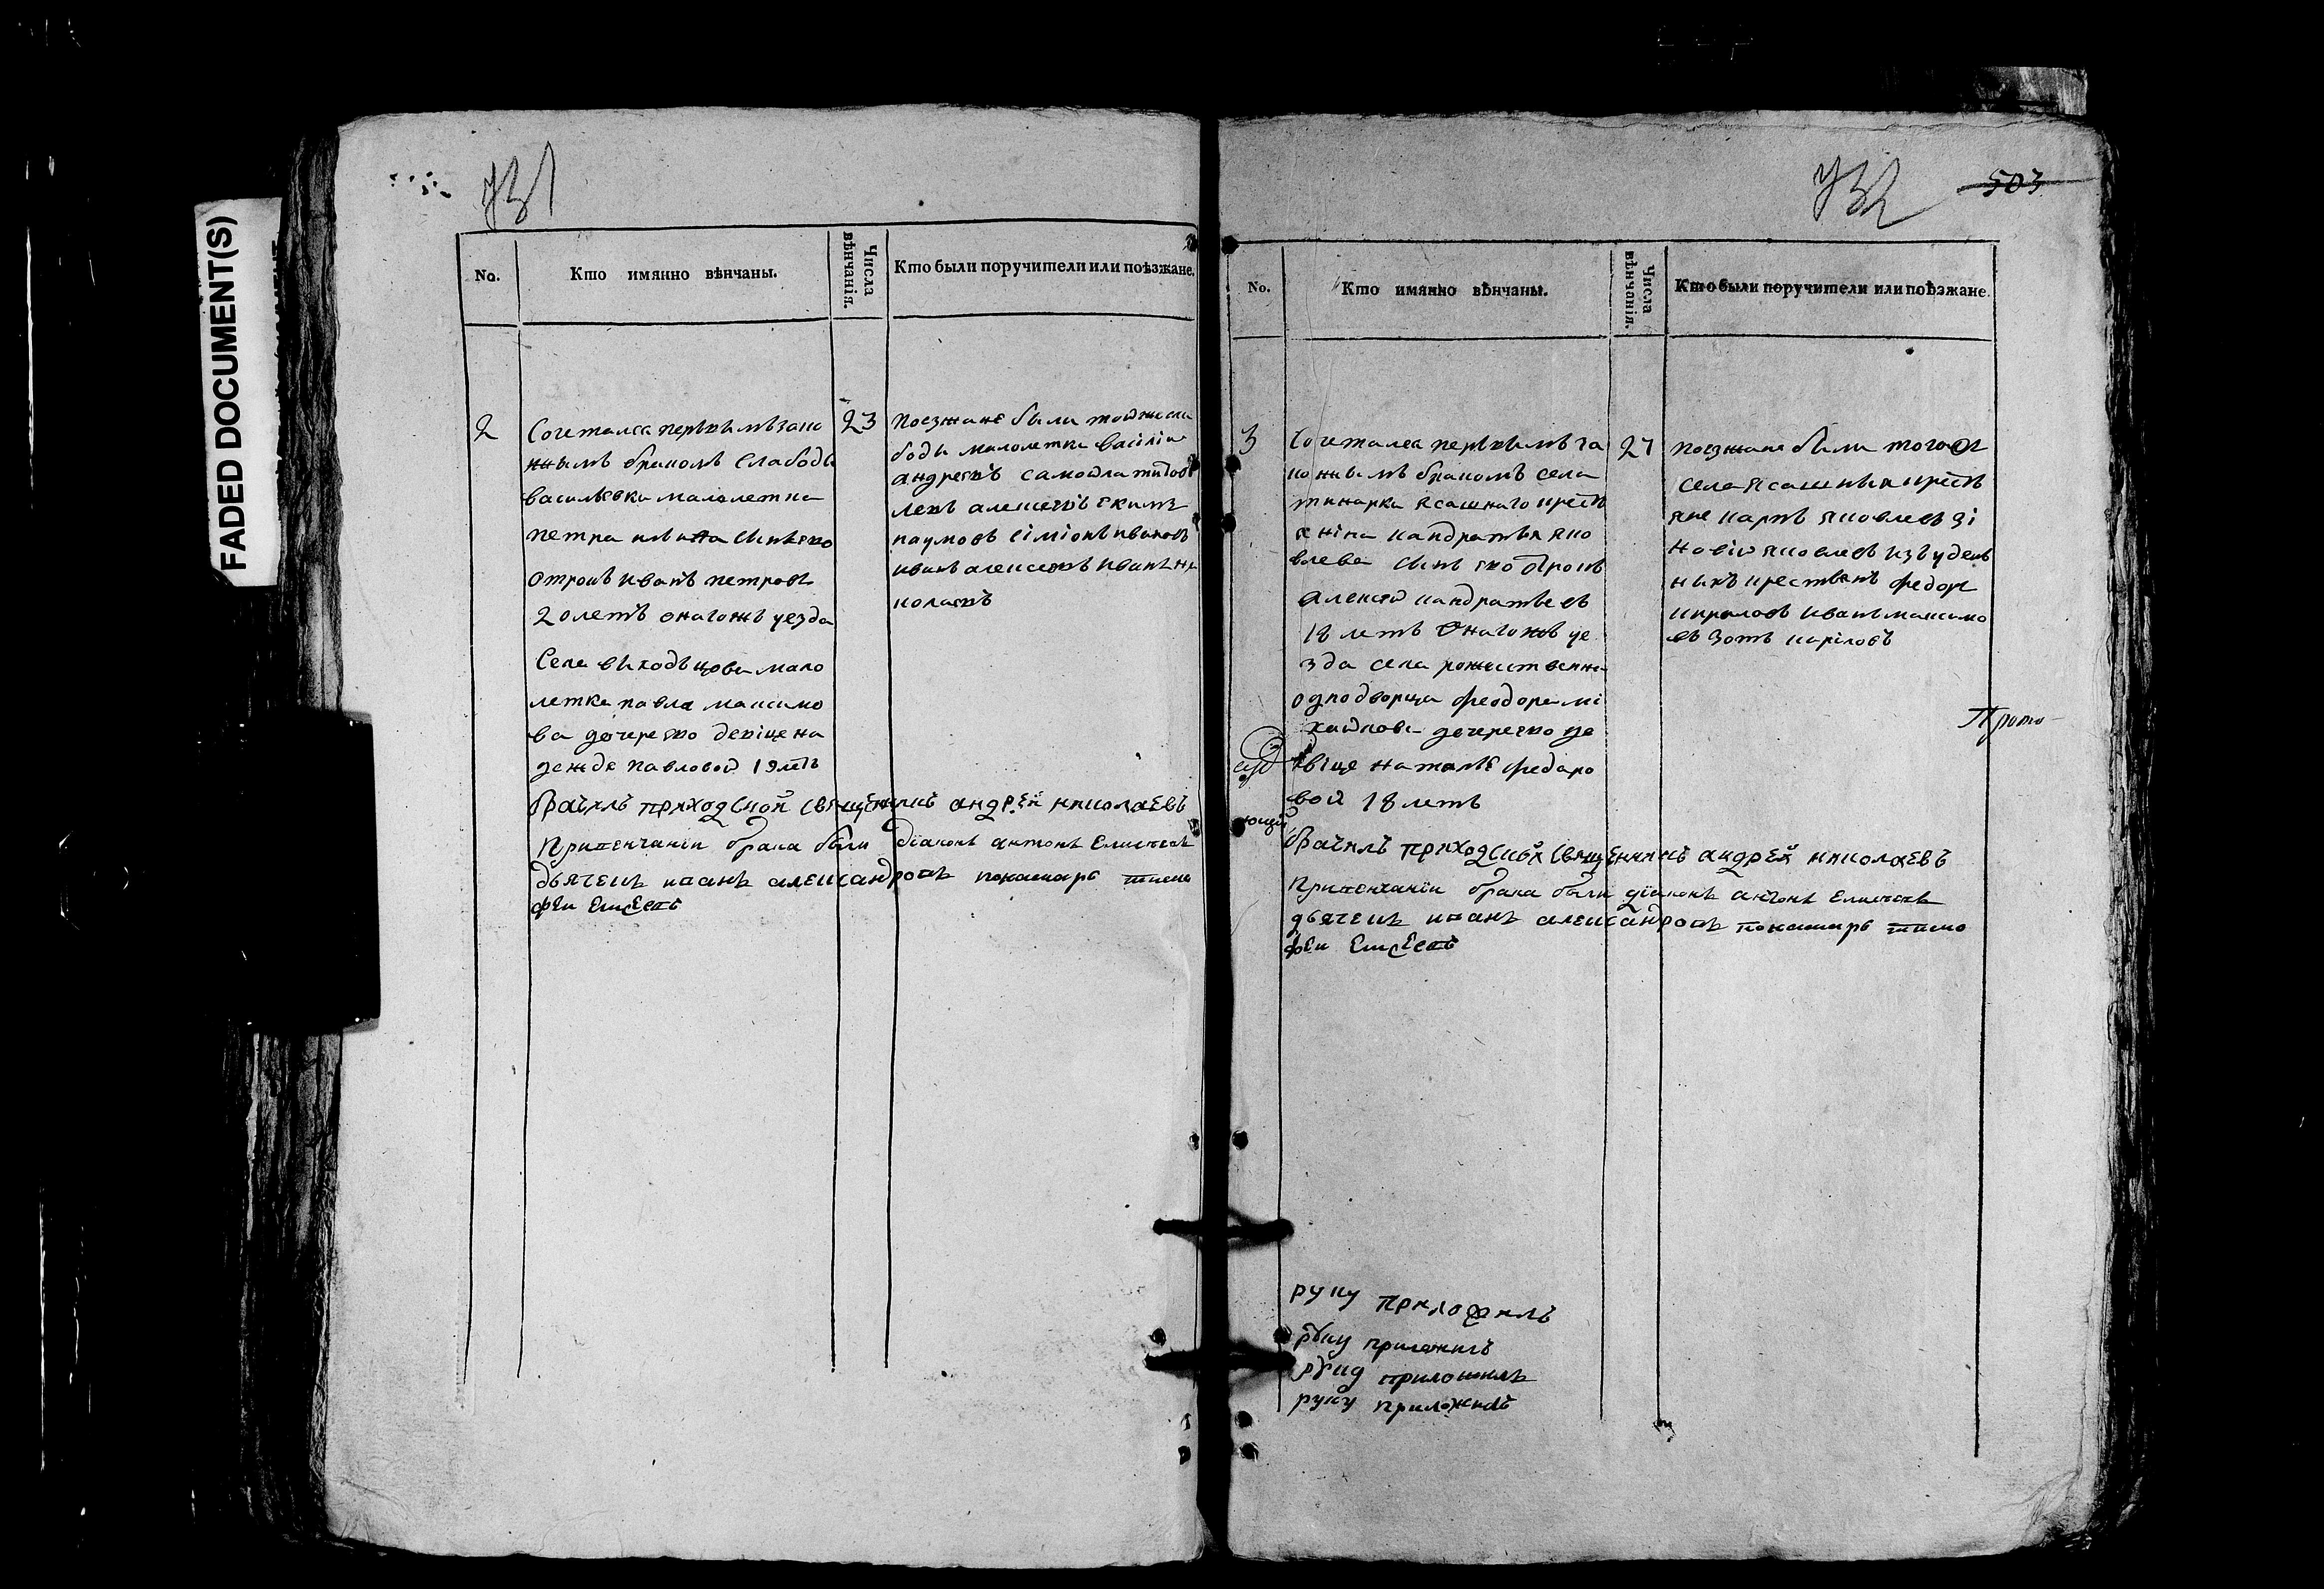 FADED DOCUMENT(S)
731
No.
Кто имянно вѣнчаны.
Числа вѣнчанія.
Кто были поручители или поѣзжане.
2
Сочетался первымъ зако
ннымъ бракомъ Слабоды
васильевки малолетка
петра сынъ ево
отрокъ иванъ петровъ
20 летъ онагожъ уезда
Села выходъцова мало
летка павла максимо
ва дочерею девіце на
дежде павловой 19 летъ
23
поезжане были тойже сла
боды малолетки василіи
андреевъ самойла титовъ
алексеевъ екимъ
наумовъ сіміонъ ивановъ
иванъ алексеевъ иванъ ни
колаевъ
бракъ приходской священникъ андрей николаевъ
Привенчаніи брака были діаконъ антонъ Елисеевъ
дьячекъ иванъ александровъ понамарь тимо
фѣи Елисеевъ
732
503
No.
Кто имянно вѣнчаны.
Числа вѣнчанія.
Кто были поручители или поѣзжане.
3
Сочетался первымъ за
конымъ бракомъ села
ясашнаго крестъ
янина кандратья яко
влева сынъ ево отрокъ
алексей кандратьевъ
18 летъ Онагожъ уе
зда села рожественна
однодворца феодора мі
хайлова дочерею де
віце наталье федаро
вой 18 летъ
27
поезжане были тогожъ
села ясашныя крестъ
яне карпъ яковлевъ зі
новій яковлевъ изъ удель
ныхъ крестьянъ федоръ
кириловъ иванъ максимо
въ зотъ кириловъ
Прото
ющій
бракъ приходской священникъ андрей николаевъ
Привенчаніи брака были діаконъ антонъ Елисеевъ
дьячекъ иванъ александровъ понамарь тимо
фѣи Елисеевъ
руку приложилъ
руку приложилъ
руку приложилъ
руку приложилъ